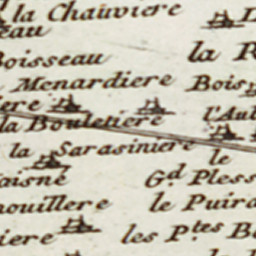 la Chauviere
eau
Boisseau
la R
Menardiere Bois
ere
l'Aub
la Bouletiere
la Sarasiniere
le
aisné
Gd. Pless
houillere
le Puira
iere
les Ptes B